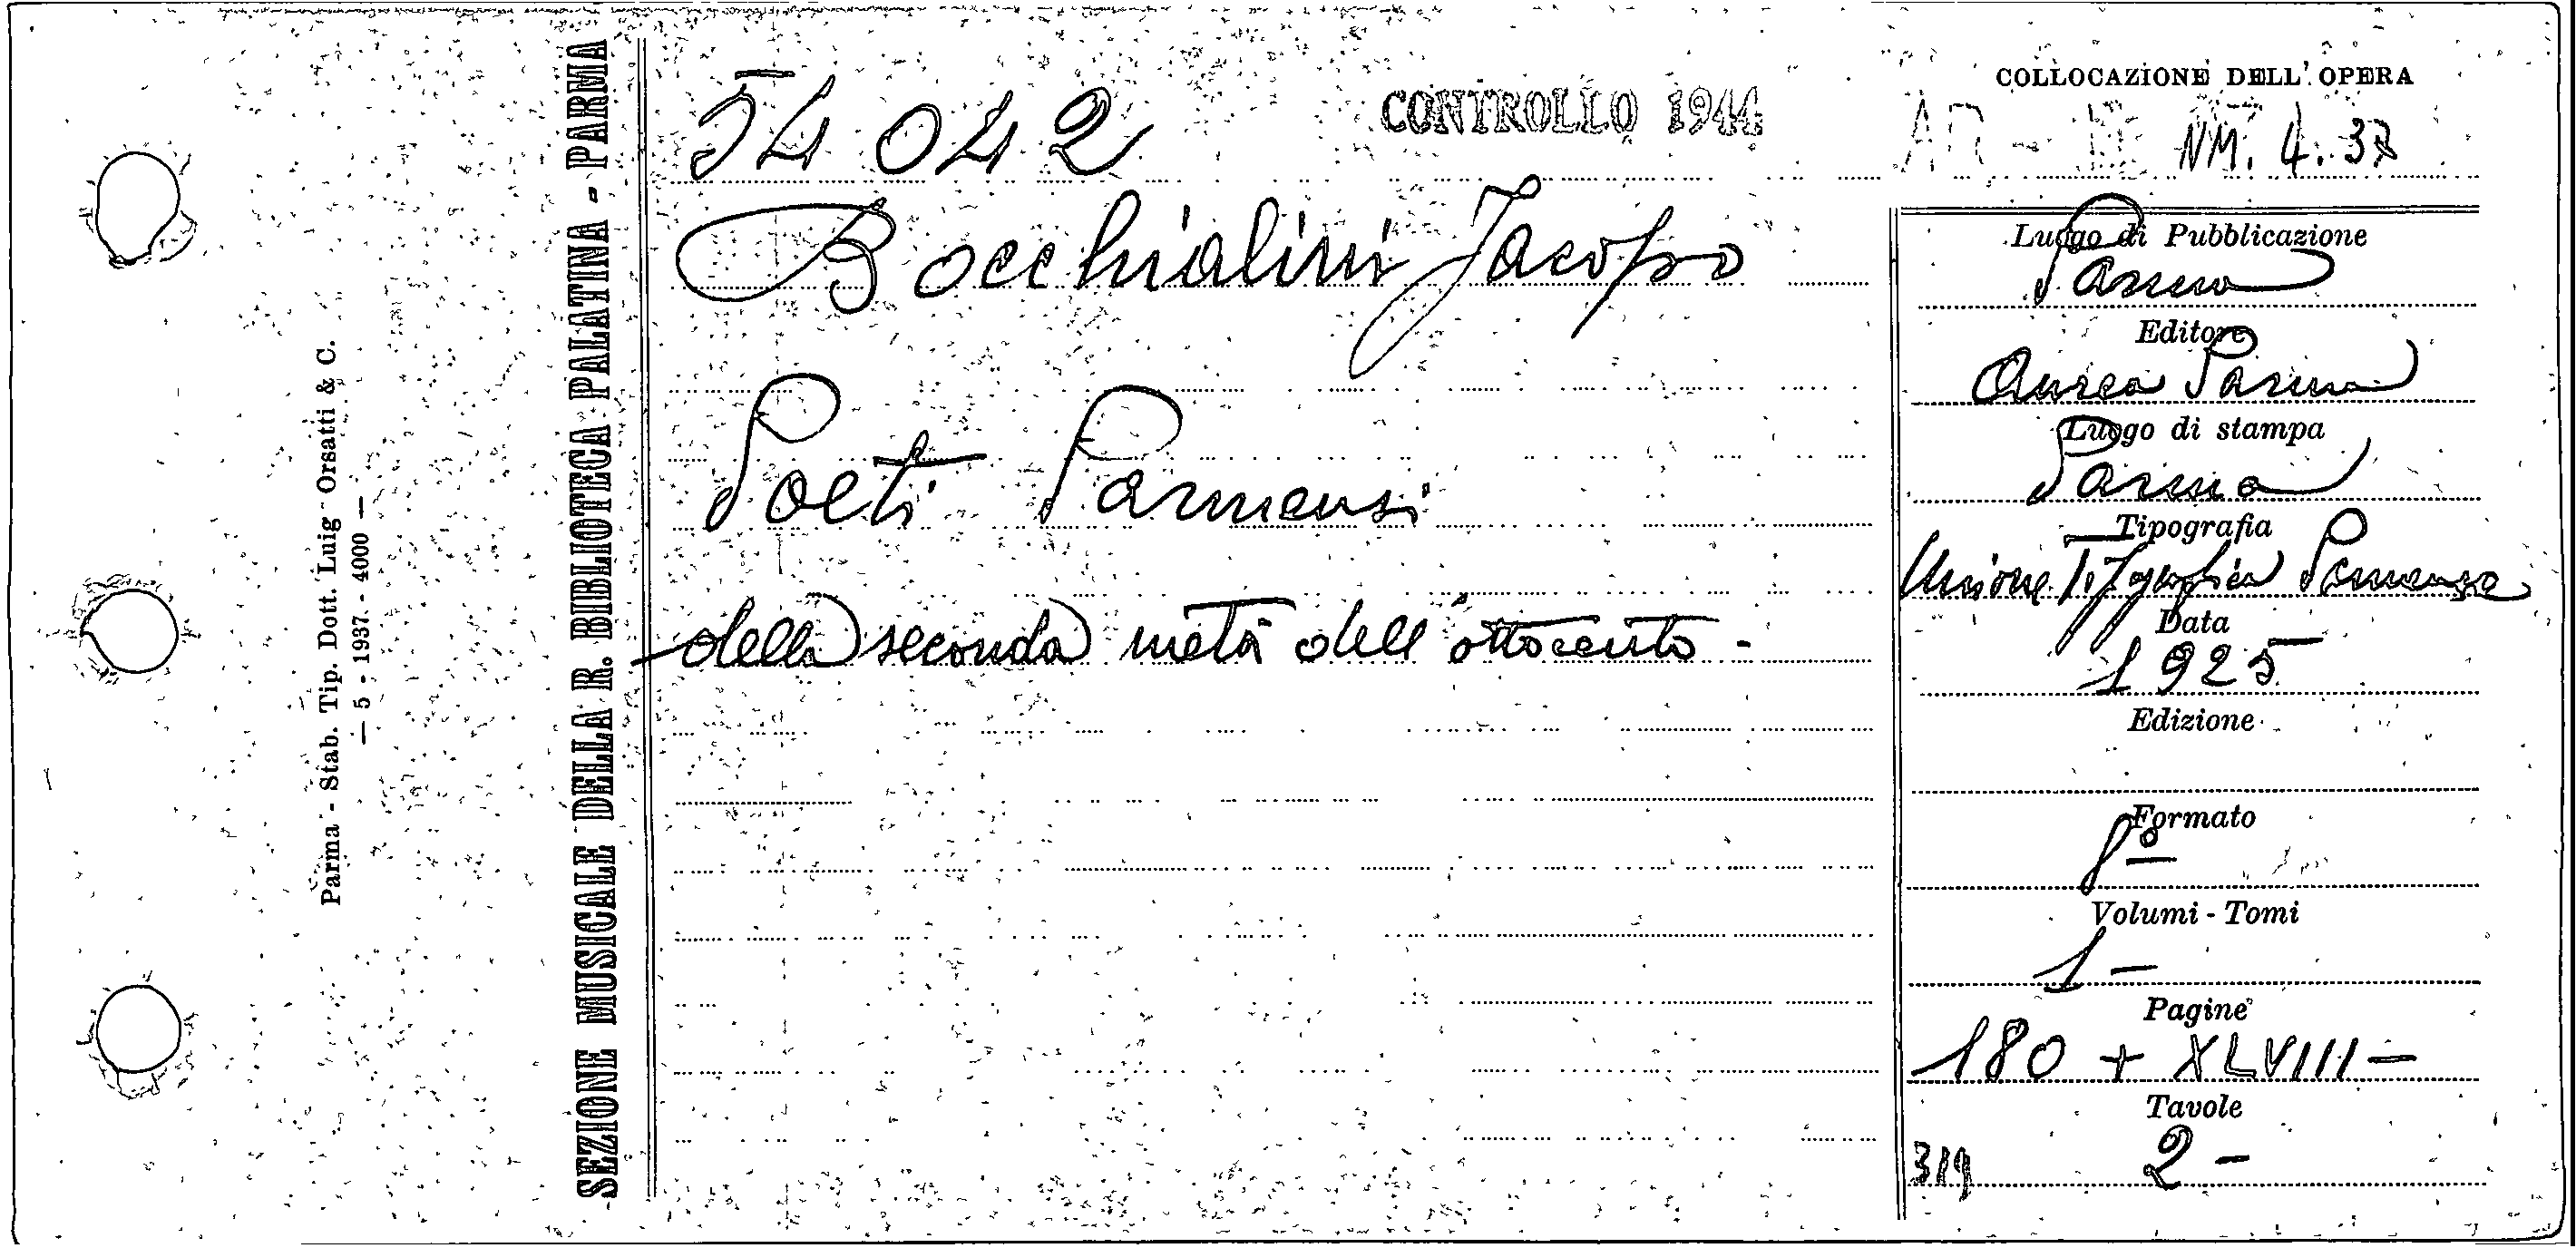 Parma - Stab. Tip. Dott. Luig Orsatti & C.
— 5 - 1937 - 4000 —
SEZIONE MUSICALE DELLA R. BIBLIOTECA PALATINA - PARMA
54042
CONTROLLO 1944
Bocchialini Jacopo
Poeti Parmensi
della seconda metà dell'ottocento -
COLLOCAZIONE DELL'OPERA
NM. 4. 38
Luogo di Pubblicazione
Parma
Editore
Aurea Parma
Luogo di stampa
Parma
Tipografia
Unione Tipografica Parmense
Data
1925
Edizione
Formato
8°
Volumi - Tomi
1 -
Pagine
180 + XLVIII -
Tavole
2 -
319